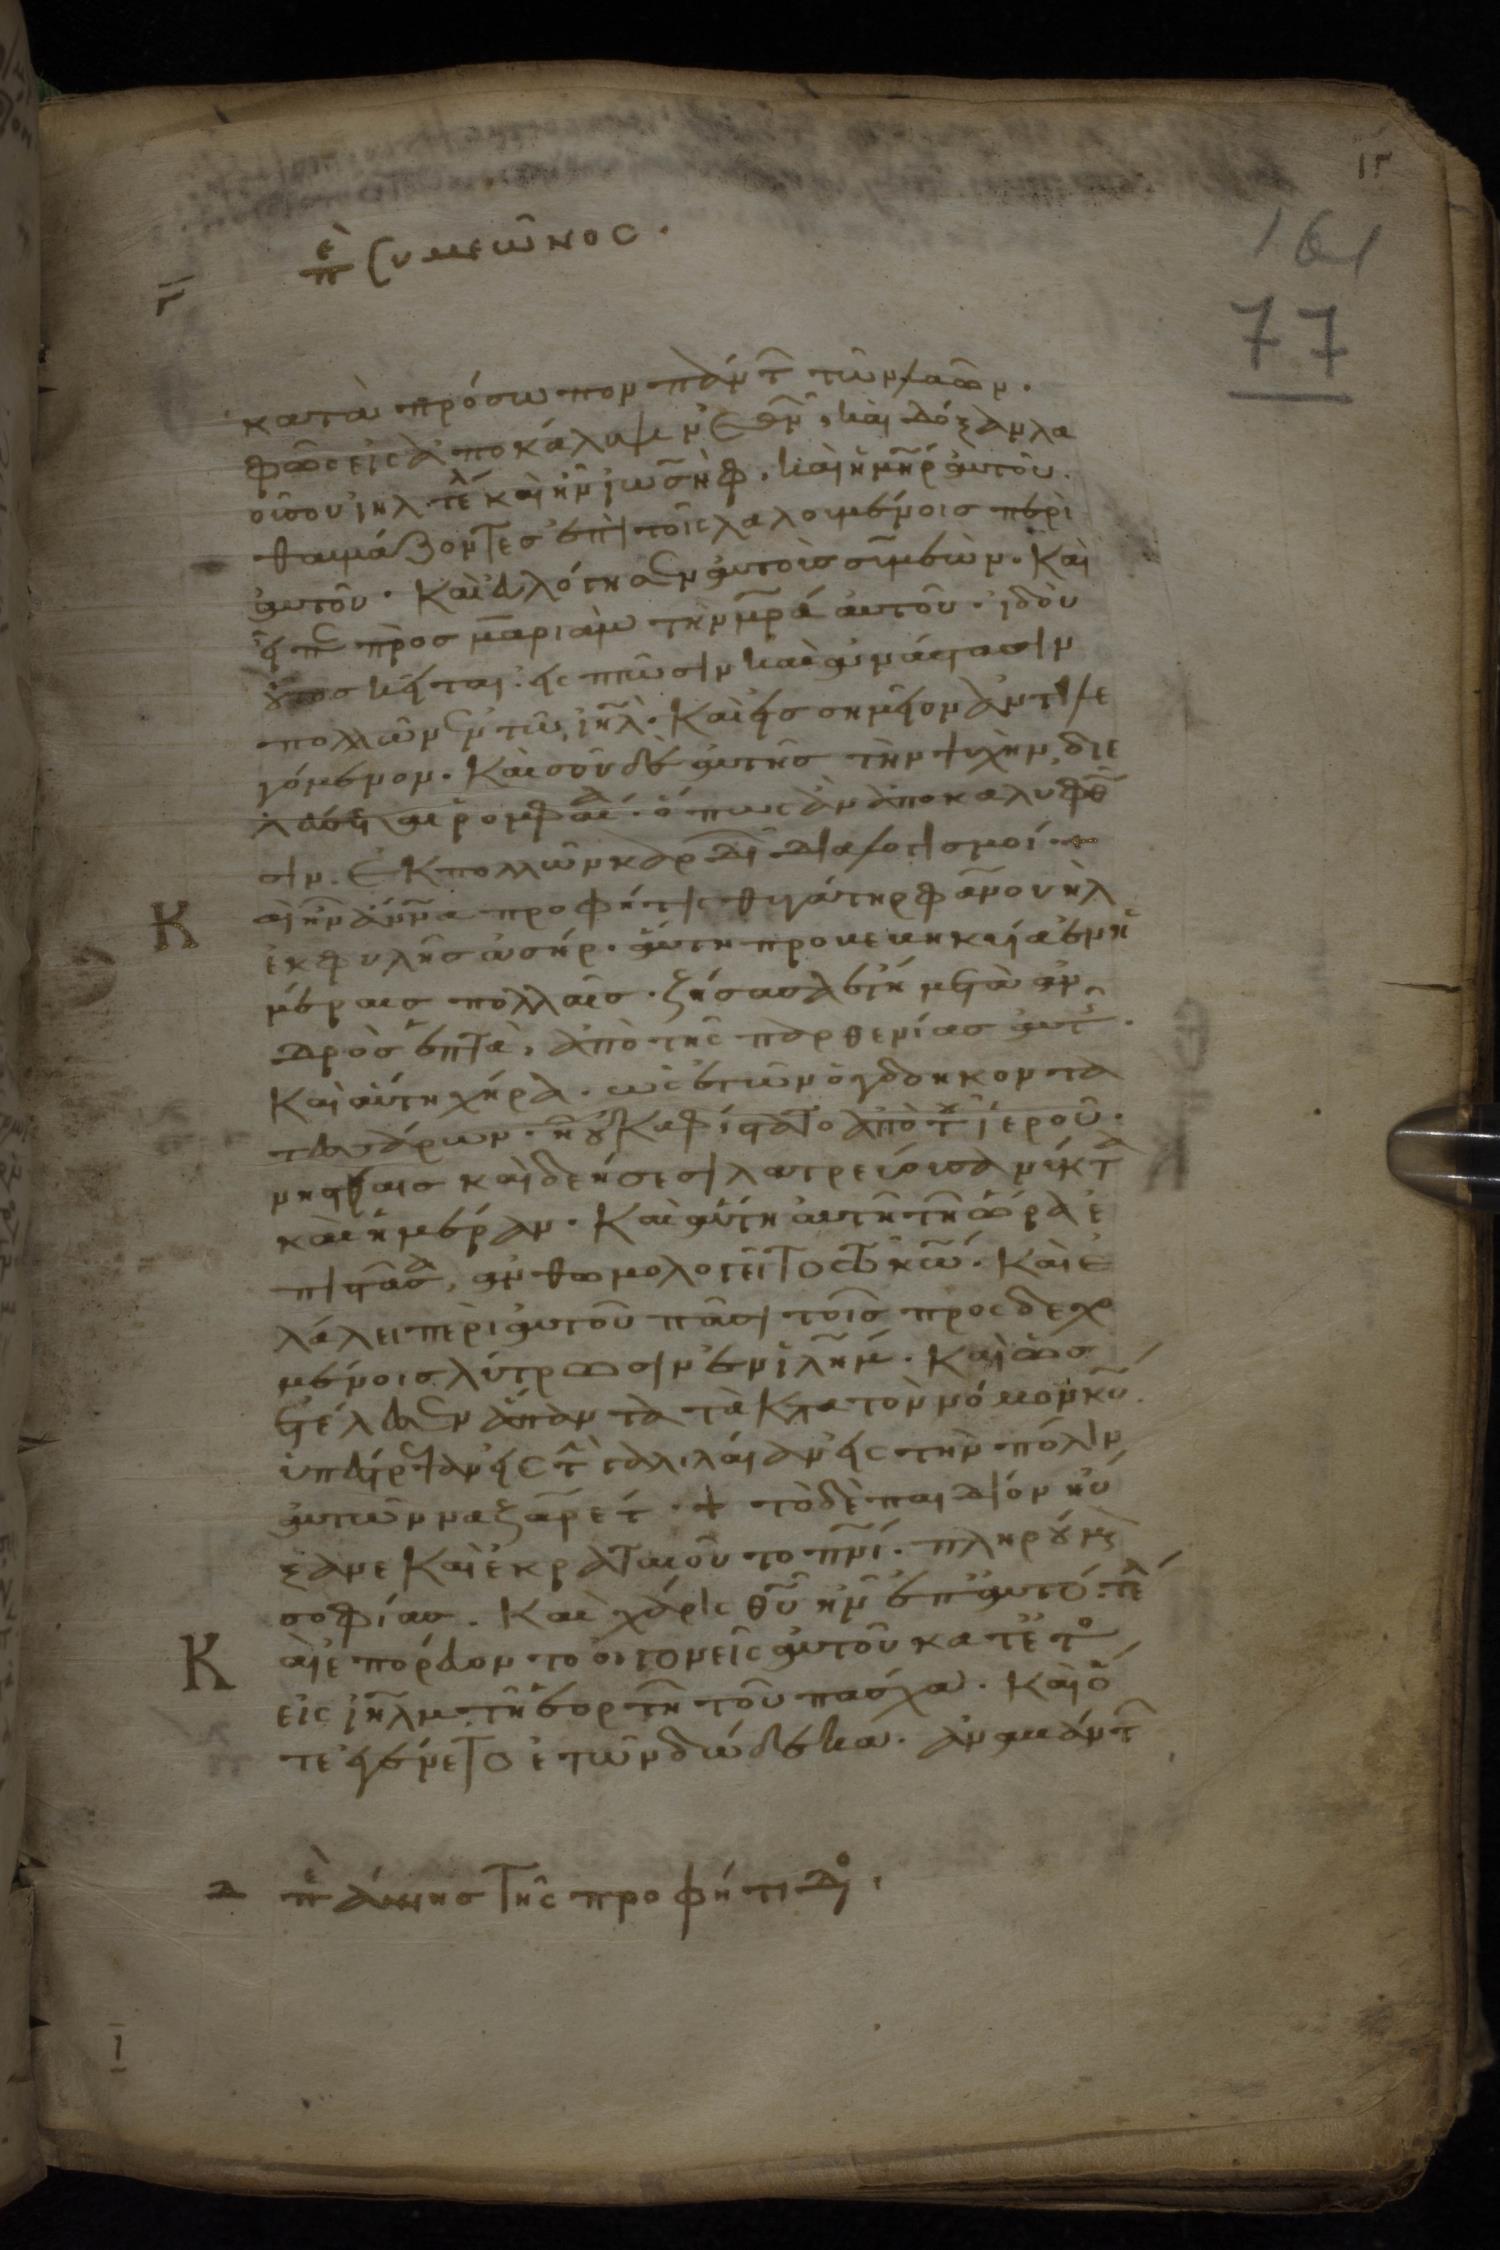 ιγ
161
77
γ περὶ Συμεῶνος.
κατὰ πρόσωπον πάντ(ων) τῶν λαῶν.
φῶς εἰς ἀποκάλυψιν ἐθν(ῶν), καὶ δόξαν λα
οῦ σου ἰηλ. τέλ καὶ ἦν ἰωσὴφ, καὶ ἡ μηρ αὐτοῦ
θαυμάζοντες ἐπὶ τοῖς λαλουμένοις περὶ
αὐτοῦ. Καὶ εὐλόγησεν αὐτοὺς συμεών. Καὶ
εἶπεν πρὸς μαριὰμ τὴν μρα αὐτοῦ. ἰδοὺ
οὗτος κεῖται εἰς πτῶσιν καὶ ἀνάστασιν
πολλῶν ἐν τῶ ἰηλ. Καὶ εἰς σημεῖον ἀντιλε
γόμενον. Καὶ σοῦ δὲ αὐτῆς τὴν ψυχὴν διε
λεύσεται ρομφαία. ὅπως ἂν ἀποκαλυφθῶ
σιν ἐκ πολλῶν καρδι(ῶν) διαλογισμοί.
Κ αὶ ἦν ἄννα προφῆτις θυγάτηρ φανουὴλ
ἐκ φυλῆς ἀσήρ. αὕτη προβεβηκυῖα ἐν ἡ
μέραις πολλαῖς. ζήσασα ἔτη μετὰ ἀν
δρὸς ἑπτὰ, ἀπὸ τῆς παρθενίας αὐτ(ῆς).
Καὶ αὕτη χήρα. ὡς ἐτῶν ὀγδοηκοντα
τεσσάρων. ἣ οὐκ ἀφίστατο ἀπὸ τοῦ ἱεροῦ.
νηστείαις καὶ δεήσεσι λατρεύουσα νύκτα
καὶ ἡμέραν. Καὶ αὕτη αὐτῆ τῆ ὥρα ἐ
πιστᾶσα, ἀνθωμολογεῖτο τῶ κω. Καὶ ἐ
λάλει περὶ αὐτοῦ πᾶσι τοῖς προσδεχο
μένοις λύτρωσιν ἐν ἰλημ. Καὶ ὡς
ἐτέλεσεν ἅπαντα τὰ κατα τὸν νόμον κυ
ὑπέστρεψαν εἰς τ(ὴν) γαλιλαίαν εἰς τὴν πόλιν
αὐτῶν ναζαρέτ. + τὸ δὲ παιδίον ηὔ
ξανε καὶ ἐκραταιοῦτο πνι. πληρούμ(ενον)
σοφίας. Καὶ χάρις θυ ἦν ἐπ' αὐτό. τέλ
Κ αὶ ἐπορεύοντο οἱ γονεῖς αὐτοῦ κατ' ἔτο(ς)
εἰς ἰηλμ τῆ ἑορτῆ τοῦ πάσχα. Καὶ ὅ
τε ἐγένετο ἐτῶν δώδεκα. ἀναβάντ(ων)
δ περὶ ἄννης τῆς προφήτιδο(ς)
ι